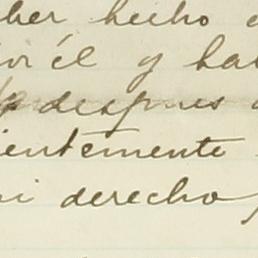 ber hecho
por él y ha
despues
ientemente
mi derecho,